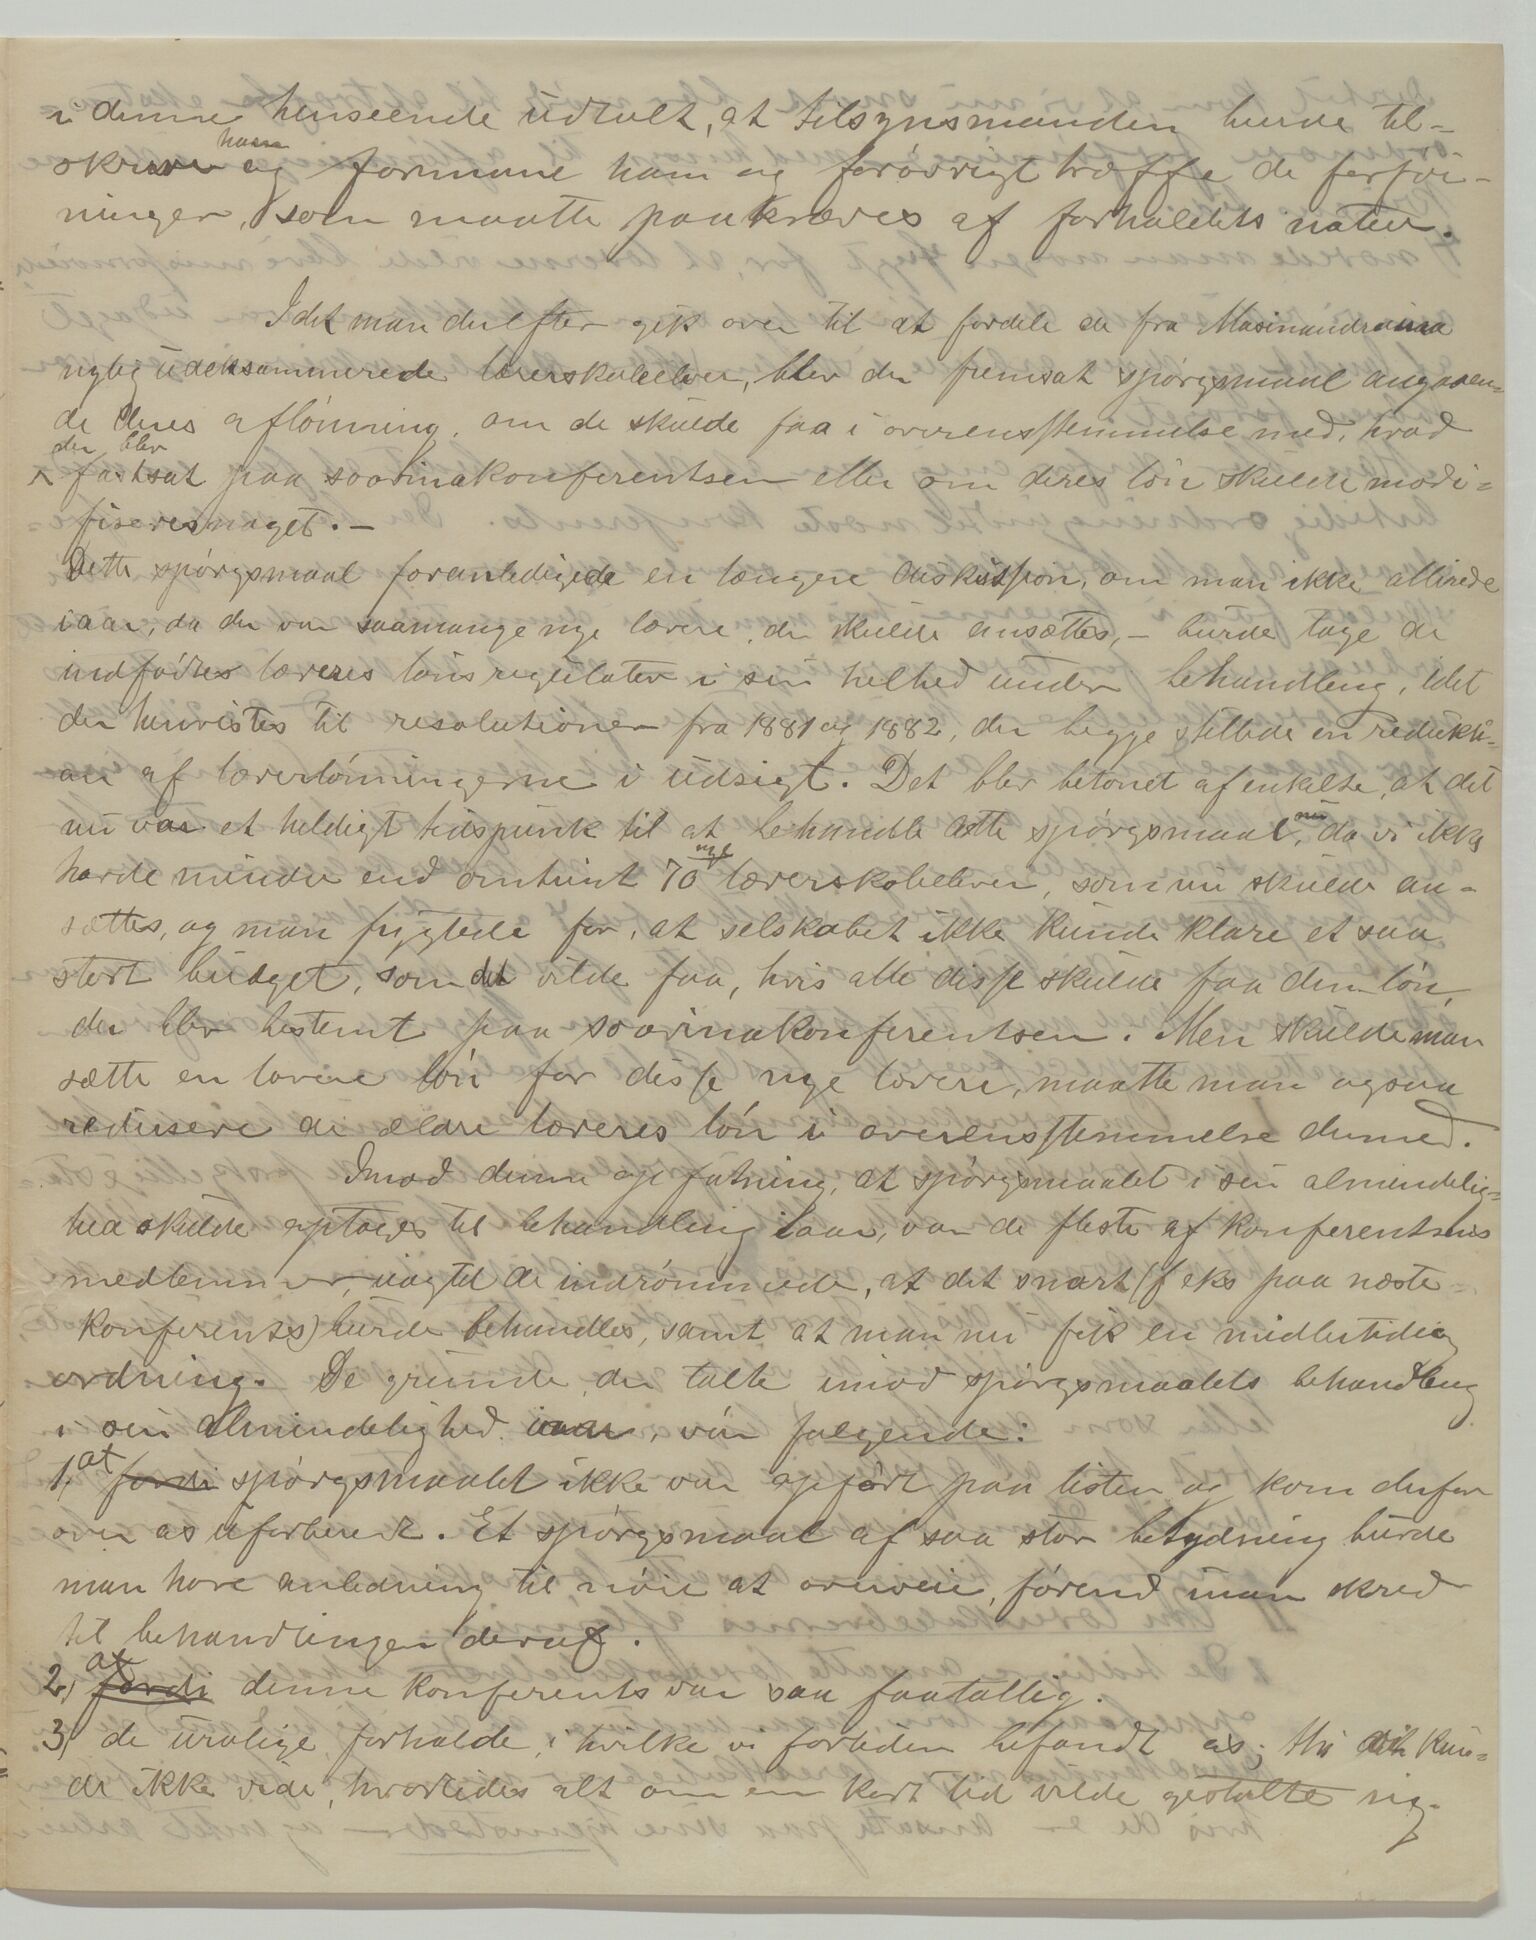 i denne henseende udtalt, at tilsynsmanden burde til-
skrive ham og formane ham og forøvrigt træffe de forføi-
ninger, som maatte paakræves af forholdets natur.
Idet man derefter gik over til at fordele de fra Masinandraina
nylig udeksaminerede lærerskoleelever, blev der fremsat spørgsmaal angaaen-
de deres aflønning, om de skulde faa i overensstemmelse med, hvad
der blev fastsat paa soavinakonferentsen eller om deres løn skulde modi-
fiseres noget. –
Dette spørgsmaal foranledigede en længere diskussion, om man ikke allerede
iaar, da der var saamange nye lærere, der skulde ansættes, – burde tage de
indfødtes læreres lønsregulativ i sin helhed under behandling, idet
der henvistes til resolutioner fra 1881 og 1882, der begge stillede en redukti-
on af lærerlønningerne i udsigt. Det blev betonet af enkelte, at det
nu var et heldigt tidspunkt til at behandle dette spørgsmaal nu, da vi ikke
havde mindre end omtrent 70 nye lærerskoleelever, som nu skulde an-
sættes, og man frygtede for, at selskabet ikke kunde klare et saa
stort budget, som det vilde faa, hvis alle disse skulde faa den løn,
der blev bestemt paa soavinakonferentsen. Men skulde man
sætte en lavere løn for disse nye lærere, maatte man ogsaa
redusere de ældre læreres løn i overensstemmelse dermed.
Imod denne opfatning, at spørgsmaalet i sin almindelig-
hed skulde optages til behandling iaar, var de fleste af konferentsens
medlemmer, uagtet de indrømmede, at det snart (f eks paa næste
konferents) burde behandles, samt at man nu fik en midlertidig
ordning. De grunde, der talte imod spørgsmaalets behandling
i sin almindelighed iaar, var følgende:
1, at fordi spørgsmaalet ikke var opført paa listen og kom derfor
over os uforberedt. Et spørgsmaal af saa stor betydning burde
man have anledning til nøie at overveie, førend man skred
til behandlingen deraf.
2, at fordi denne konferents var saa faatallig.
3, de urolige forholde, i hvilke vi fortiden befandt os; thi vi kun-
de ikke vide, hvorledes alt om en kort tid vilde gestalte sig.